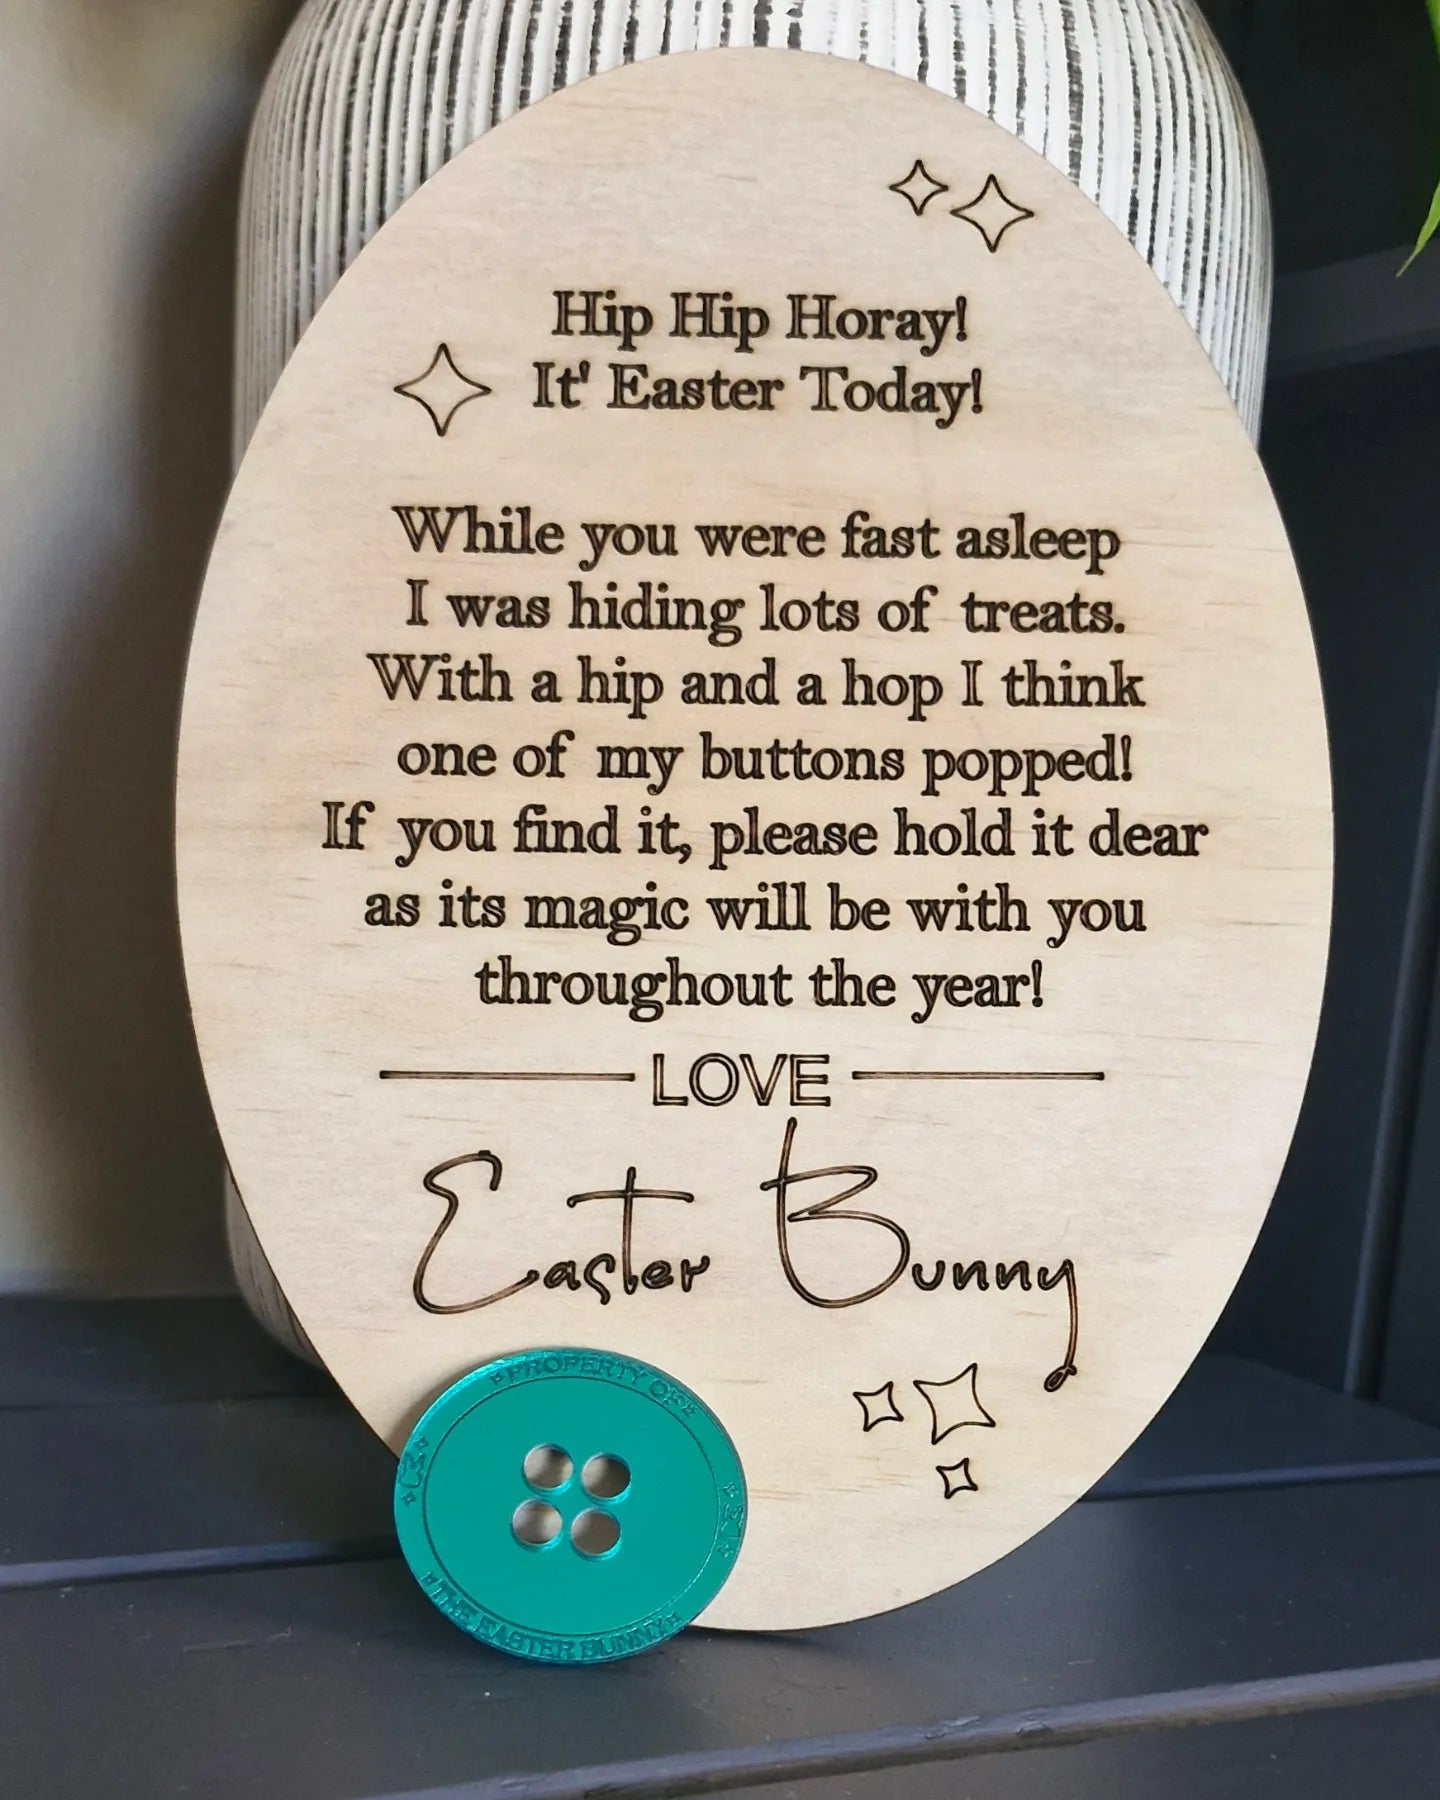 Hip Hip Horay!
It' Easter Today!
While you were fast asleep
I was hiding lots of treats.
With a hip and a hop I think
one of my buttons popped!
If you find it, please hold it dear
as its magic will be with you
throughout the year!
LOVE
Easter Bunny
PROPERTY OF
THE EASTER BUNNY